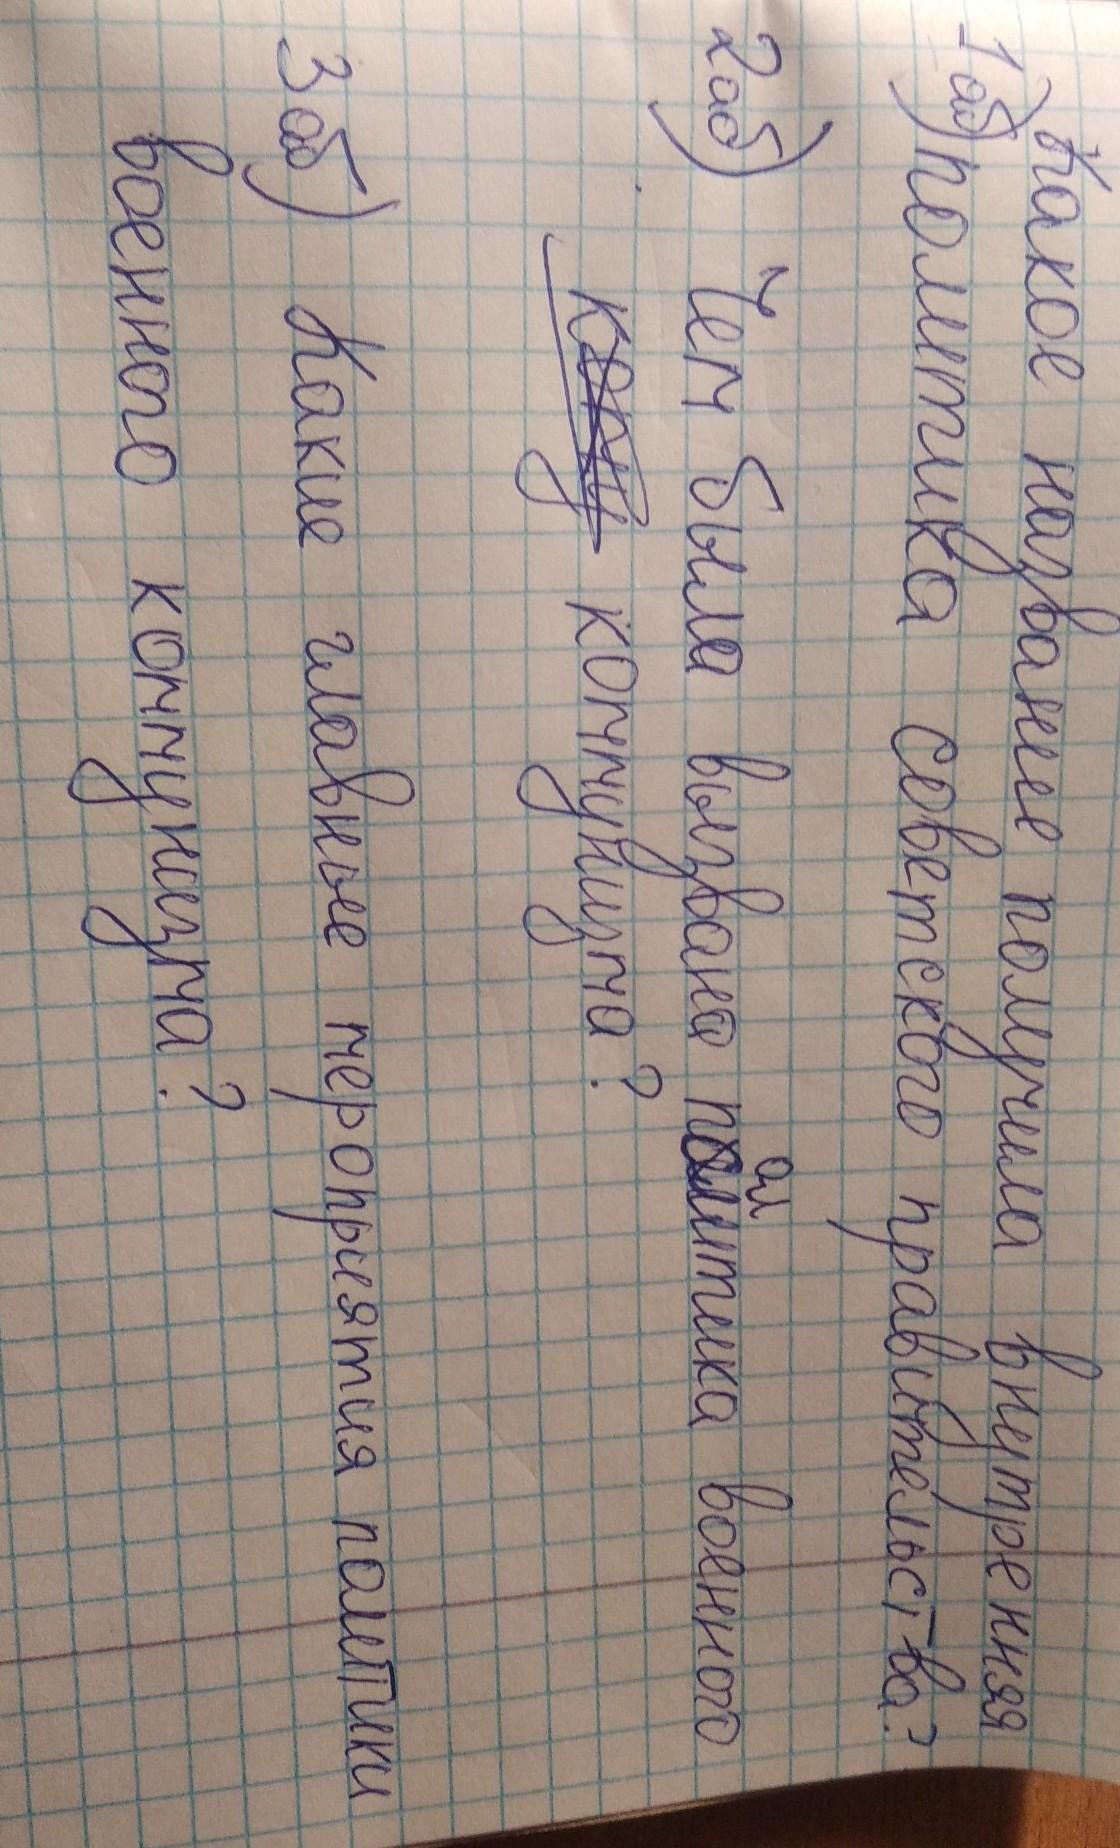 1) Какое название получила внутренняя
1аб) политика советского правительства?
2аб) Чем была вызвана политика военного
коммунизма?
3аб) Какие главные мероприятия политики
военного коммунизма?